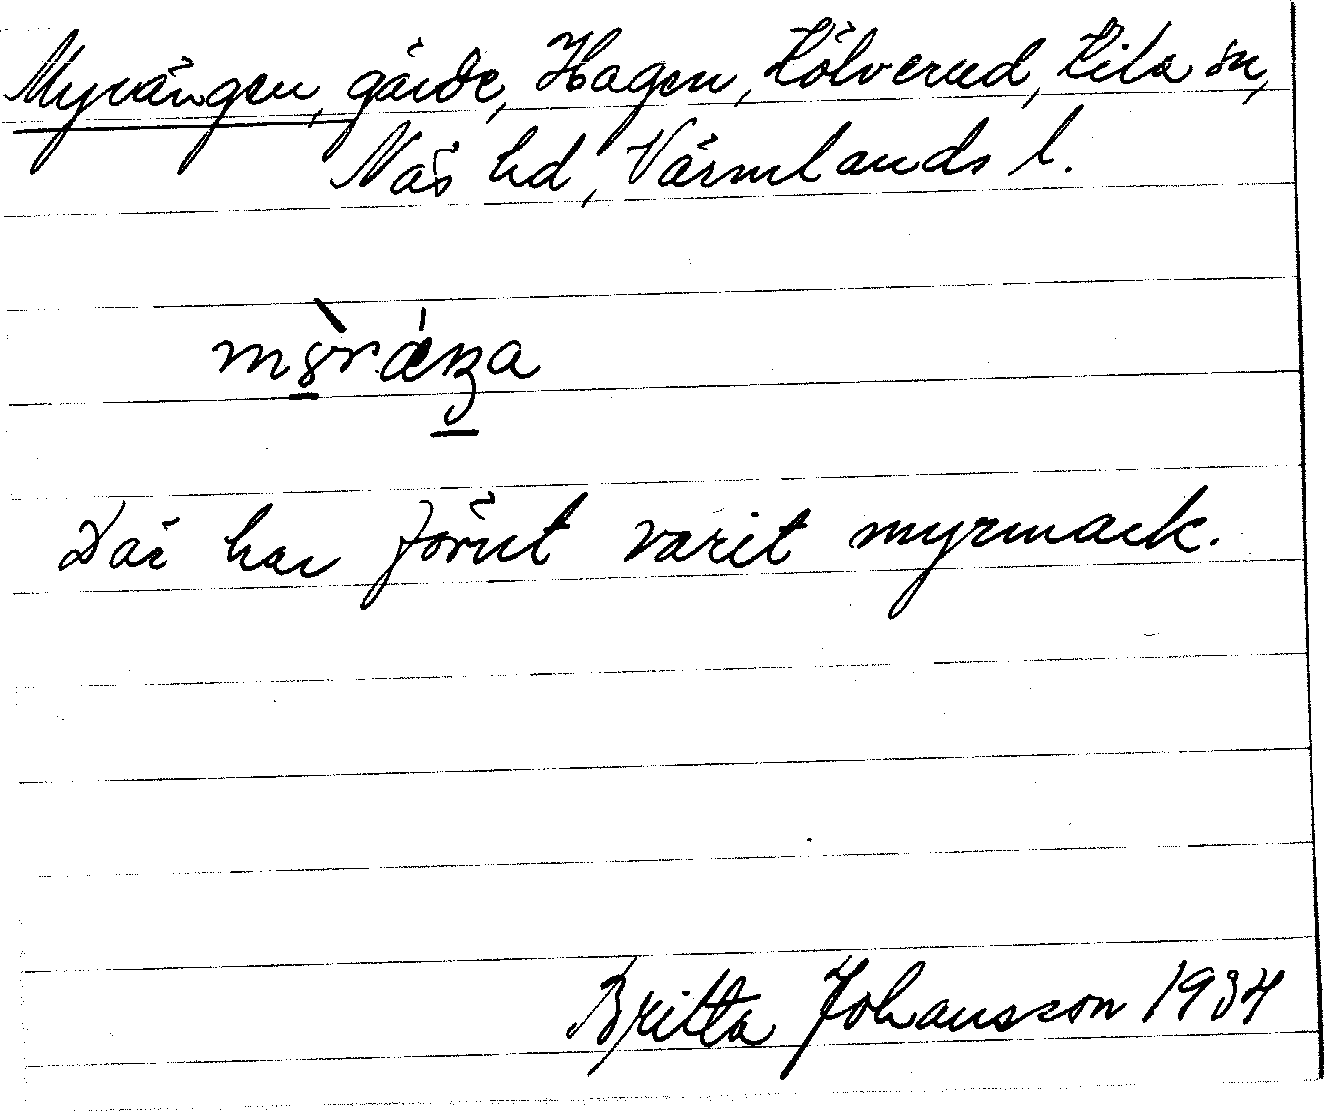 Myrängen, gärde, Hagen, Hölverud, Kila sn,
Näs hd, Värmlands l.
Där har förut varit myrmark.
Britta Johansson 1934